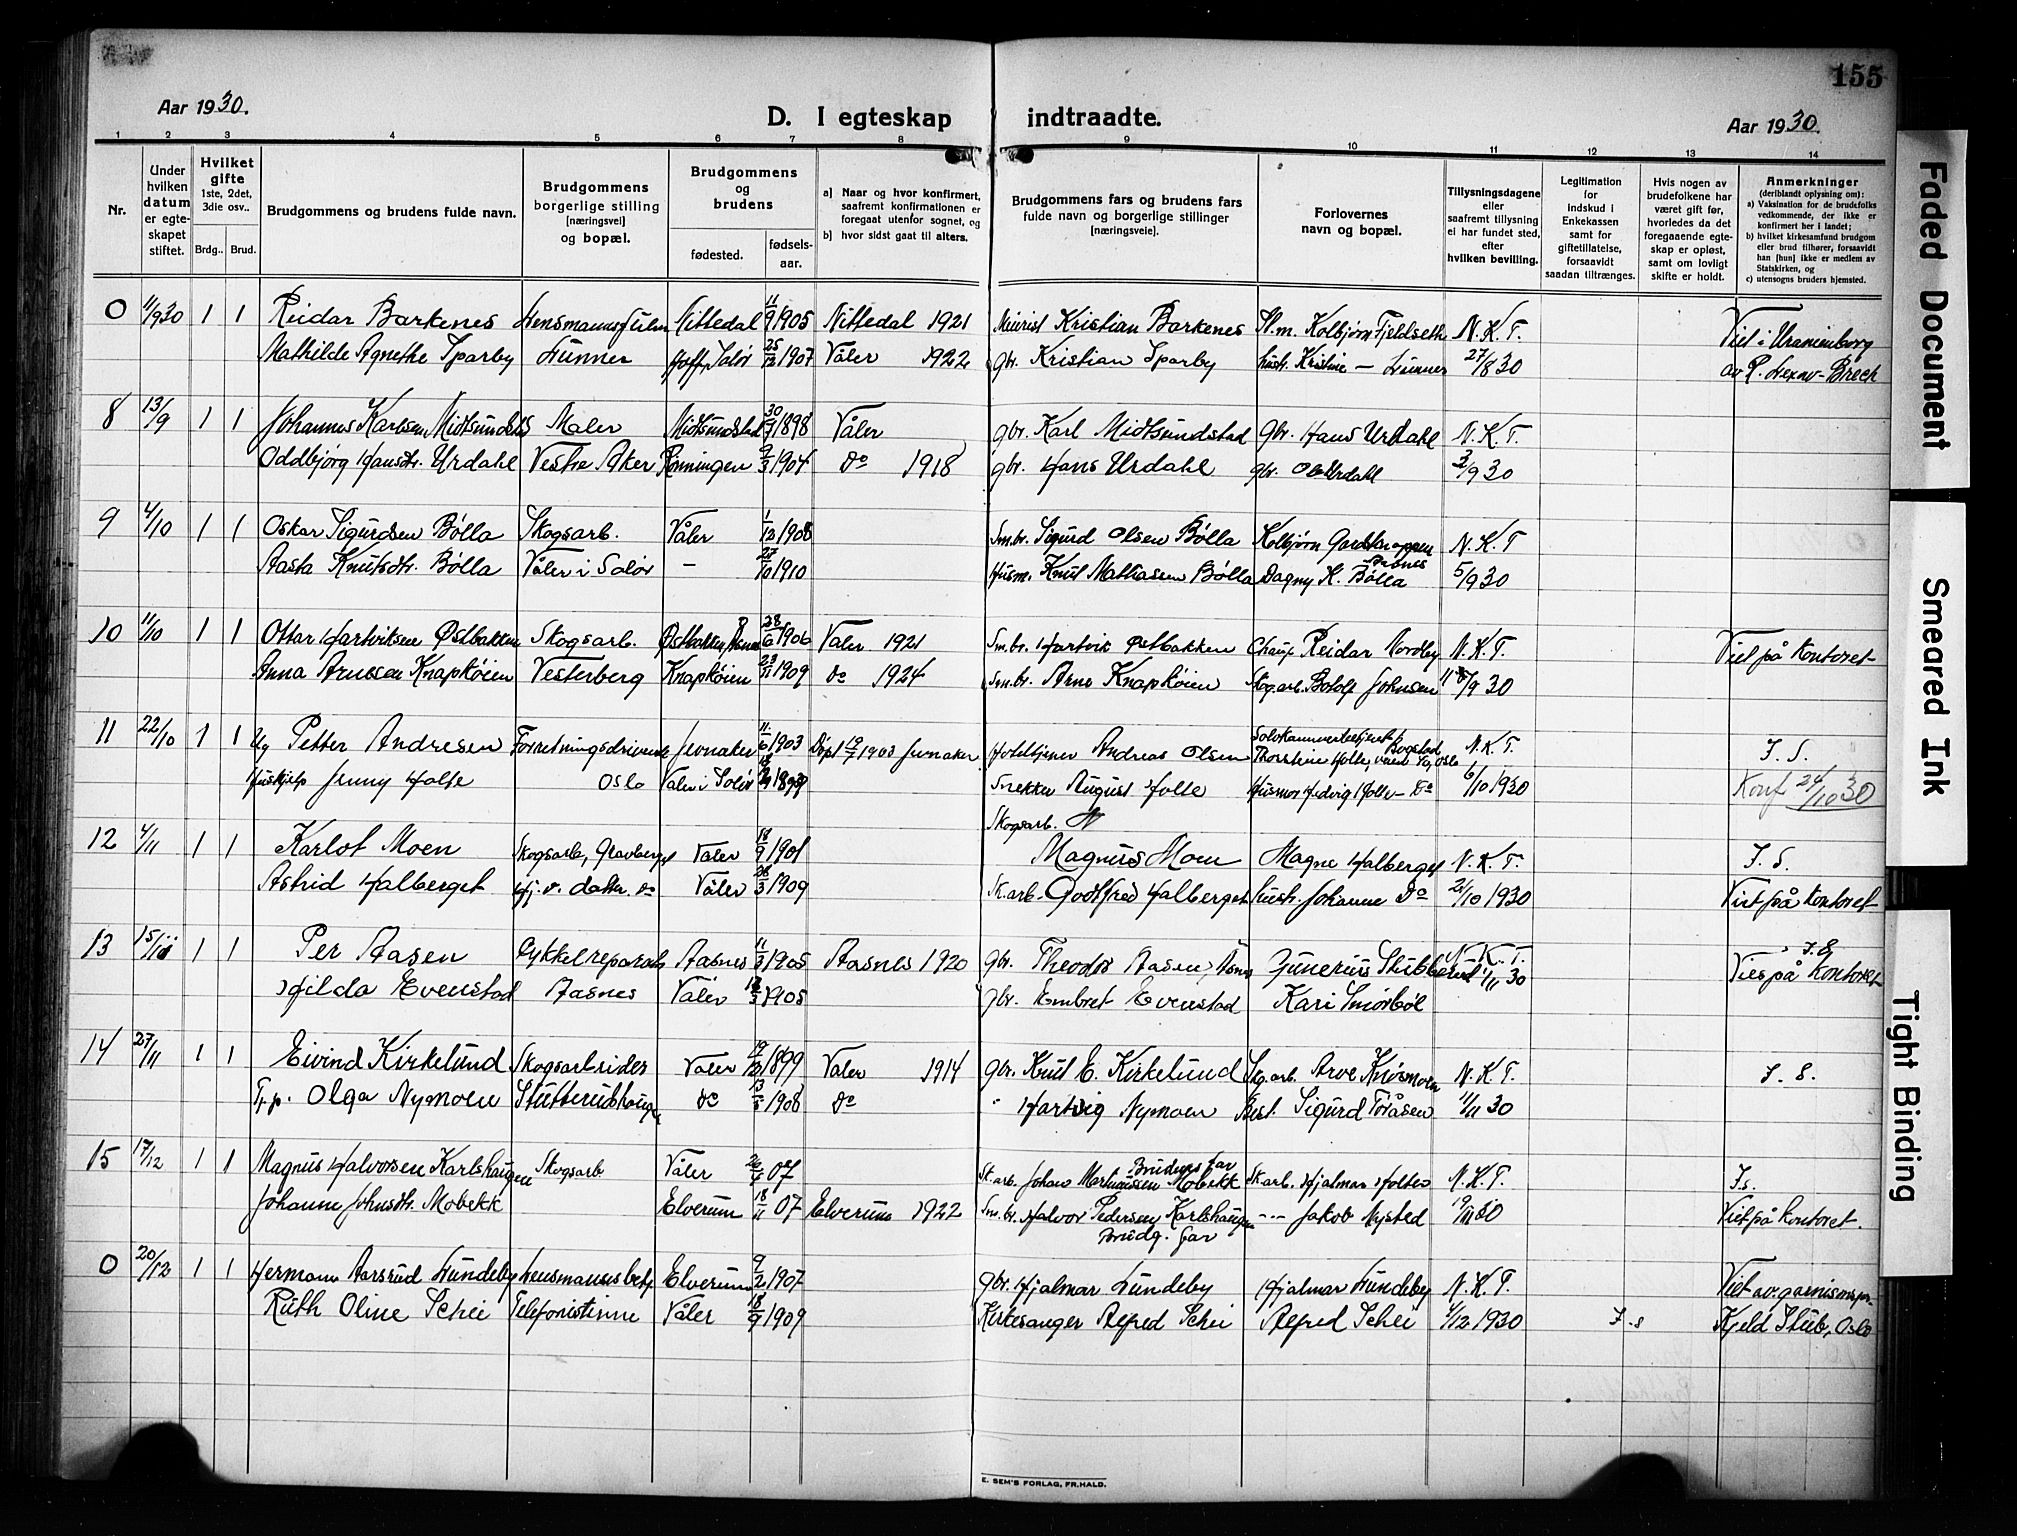 155
Aar 1930.
D. I egteskap indtraadte.
Aar 1930.
1 2 3 4 5 6 7 8 9 10 11 12 13 14
Nr.
Under hvilken datum er egteskapet stiftet.
Hvilket gifte 1ste, 2det, 3die osv..
Brdg.. Brud.
Brudgommens og brudens fulde navn.
Brudgommens borgerlige stilling [næringsvei] og bopæl.
Brudgommens og brudens
fødested. fødsels-aar.
a) Naar og hvor konfirmert, saafremt konfirmationen er foregaat utenfor sognet, og
b) hvor sidst gaat til alters.
Brudgommens fars og brudens fars fulde navn og borgerlige stillinger [næringsveie].
Forlovernes navn og bopæl.
Tillysningsdagene eller saafremt tillysning ei har fundet sted, efter hvilken bevilling.
Legitimation for indskud i Enkekassen samt for giftetillatelse, forsaavidt saadan tiltrænges.
Hvis nogen av brudefolkene har været gift før, hvorledes da det foregaaende egteskap er opløst, samt om lovligt skifte er holdt.
Anmerkninger (deriblandt oplysning om):
a) Vaksination for de brudefolks vedkommende, der ikke er konfirmert her i landet;
b) hvilket kirkesamfund brudgom eller brud tilhører, forsaavidt han [hun] ikke er medlem av Statskirken, og
c) utensogns bruders hjemsted.
0 11/9 30 1 1 Reidar Barkenes Lensmannsfullm Nittedal 11/9 1905 Nittedal 1921 Meierist Kristian Barkenes Kolbjørn Fjeldseth N.K.T. Viet i Uranienborg
Mathilde Agnethe Sparby Lunner Hoff, Solør 25/12 1907 Våler 1922 gbr. Kristian Sparby hustr. Kristine — Lunner 27/8 30 av P. Lexow-Brech
8 13/9 1 1 Johannes Karlsen Midtsundstad Maler Midtsundstad 1898 Våler gbr. Karl Midtsundstad gbr. Hans Urdahl N.K.T.
Oddbjørg Hansdtr. Urdahl Vestre Aker Rønningen 1904 do 1918 gbr. Hans Urdahl gbr. Ole Urdahl 3/9 30
9 4/10 1 1 Oskar Sigurdsen Bølla Skogsarb. Våler 1/12 1908 Sm.br. Sigurd Olsen Bølla Kolbjørn Gardsknappen N.K.T
Aasta Knutsdtr. Bølla Våler i Solør - 27/10 1910 Husm. Knut Mathiasen Bølla Dagny K. Bølla 5/9 30
10 11/10 1 1 Ottar Hartviksen Østbakken Skogsarb. Østbakken 28/6 1906 Våler 1921 Sm.br. Hartvik Østbakken Chauf Reidar Nordby N.K.T. Viet på kontoret
Anna Arnesen Knapkøien Vesterberg Knapkøien 23/11 1909 do 1924 Sm.br. Arne Knapkøien Skog.arb. Botolf Johnsen 30
11 22/10 1 1 Petter Andresen Forretningsdrivende Jevnaker 11/6 1903 Døpt 19/7 1903 Jevnaker Hotelltjener Andreas Olsen Thorstein Holte, Bogstad N.K.T. I.S.
Huskjelp Jenny Holte Oslo Våler i Solør 1899 Snekker August Holte Husmor Hedvig Holte - Do 6/10 1930 Konf 24/10 30
12 4/11 1 1 Karlot Moen Skogsarb., Gravberget Våler 18/9 1901 Skogsarb. Magnus Moen Magne Halberget N.K.T. I.S.
Astrid Halberget Hj.v. datter. do Våler 28/3 1909 Sk.arb. Godtfred Halberget hustr. Johanne Do 21/10 1930 Viet på kontoret
13 15/11 1 1 Per Aasen Sykkelreparatør Aasnes 11/3 1905 Aasnes 1920 gbr. Theodor Aasen, Åsnes Gunerius Stubberud N.K.T. 1/11 30 I.S. Viet på kontoret
Hilda Evenstad Aasnes Våler 1905 gbr. Embret Evenstad Kari Smørbøl
14 27/11 1 1 Eivind Kirkelund Skogsarbeider Våler 19/12 1899 Våler 1914 gbr. Knut E. Kirkelund Sk.arb. Arve Knismoen N.K.T. I.S.
Tj.p. Olga Nymoen Stutterudhaugen do 13/5 1908 do " Hartvig Nymoen Best. Sigurd Toråsen 11/11 30
15 17/12 1 1 Magnus Halvorsen Karlshaugen Skogsarb Våler 07 Sk.arb. Johan Martinussen Mobekk Brudens far Sk.arb. Hjalmar Holter N.K.T. I.s.
Johanne Johnsdtr. Mobekk Elverum 18/11 07 Elverum 1922 Sm.br. Halvor Pedersen Karlshaugen Brudg. far --- Jakob Nysted 19/11 30 Viet på kontoret.
0 20/12 1 1 Hermann Aarsrud Lundeby Lensmannsbetj. Elverum 9/2 1907 gbr. Hjalmar Lundeby Hjalmar Lundeby N.K.T. Viet av garnisonspr.
Ruth Oline Schei Telefonistinne Våler 18/9 1909 Kirkesanger Alfred Schei Alfred Schei 4/12 1930 I.s Kjeld Stub, Oslo
E. SEM'S FORLAG, FR.HALD.
Faded Document
Smeared Ink
Tight Binding